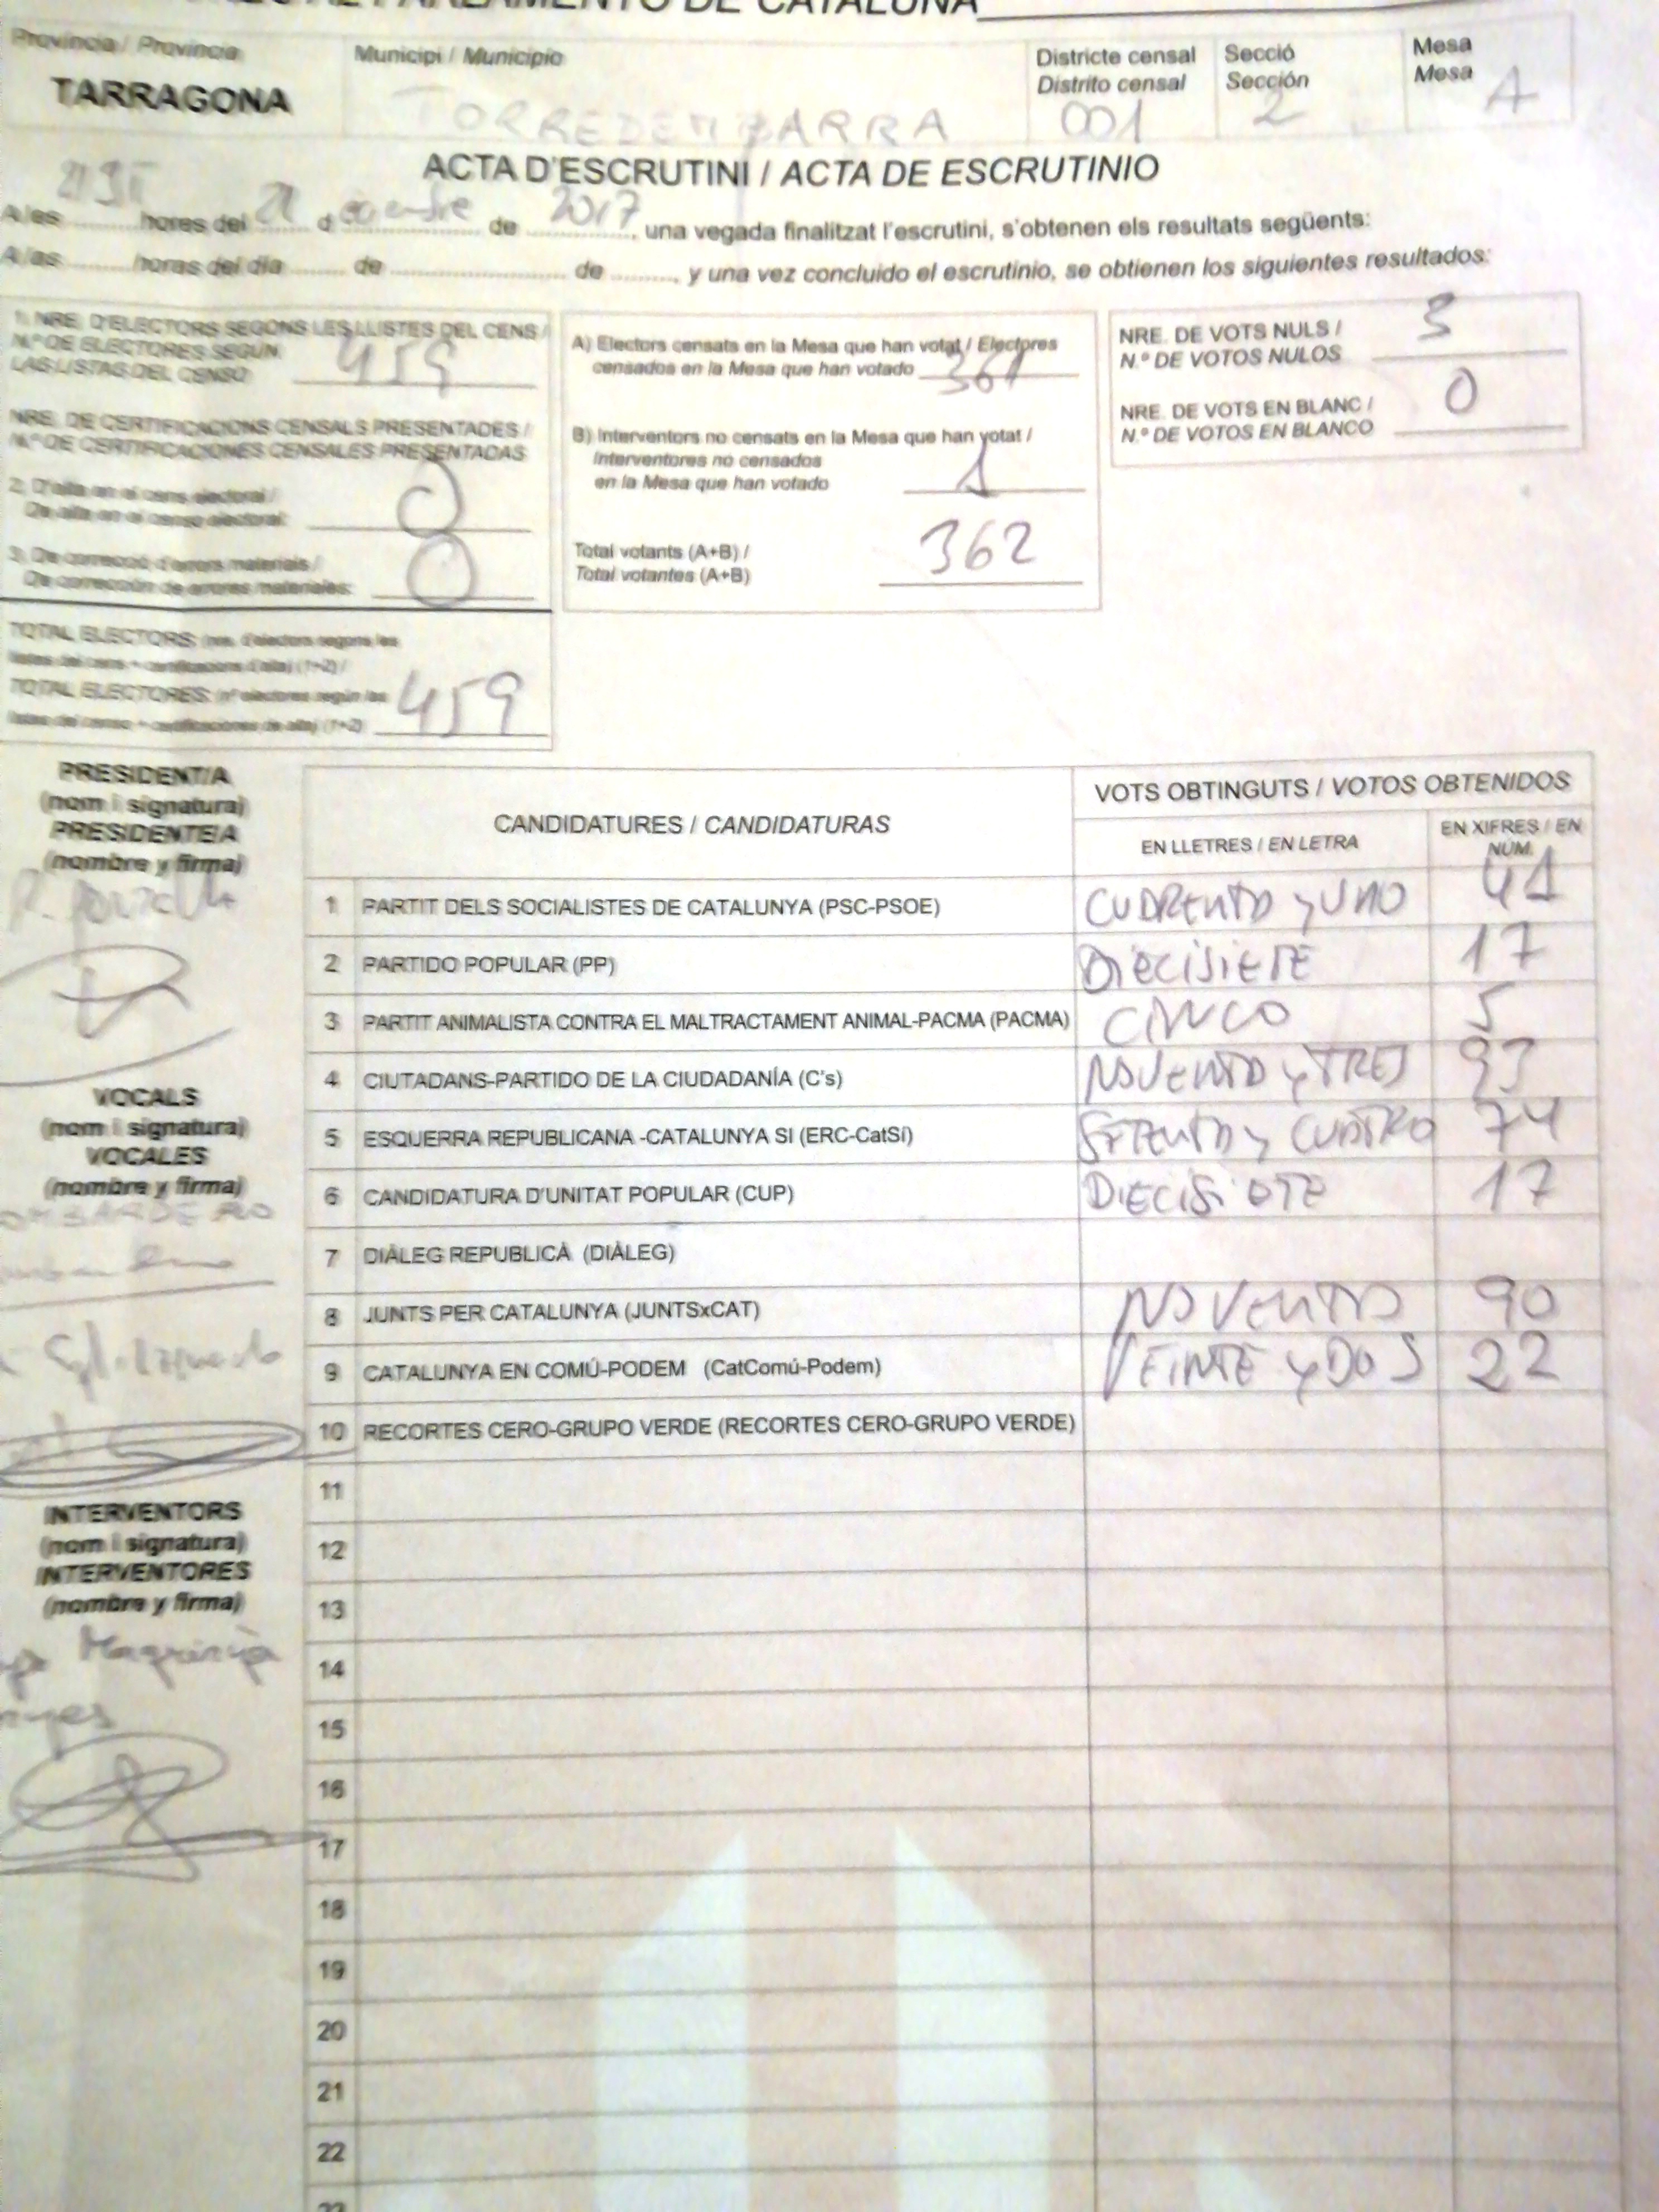 PARLAMENTO DE CATALUÑA
Província / Provincia
TARRAGONA
Municipi / Municipio
TORREDEMBARRA
Districte censal
Distrito censal
001
Secció
Sección
2
Mesa
Mesa
A
ACTA D'ESCRUTINI / ACTA DE ESCRUTINIO
A les hores del 21 d de 2017, una vegada finalitzat l'escrutini, s'obtenen els resultats següents:
A las horas del día de de, y una vez concluido el escrutinio, se obtienen los siguientes resultados:
1. NRE. D'ELECTORS SEGONS LES LLISTES DEL CENS /
N.º DE ELECTORES SEGÚN
LAS LISTAS DEL CENSO 459
NRE. DE CERTIFICACIONS CENSALS PRESENTADES /
N.º DE CERTIFICACIONES CENSALES PRESENTADAS
2. D'alta en el cens electoral /
De alta en el censo electoral: 0
3. De correcció d'errors materials /
De corrección de errores materiales: 0
TOTAL ELECTORS: (nre. d'electors segons les
llistes del cens + certificacions d'alta) (1+2) /
TOTAL ELECTORES: (nº electores según las
listas del censo + certificaciones de alta) (1+2) 459
A) Electors censats en la Mesa que han votat / Electores
censados en la Mesa que han votado 361
B) Interventors no censats en la Mesa que han votat /
Interventores no censados
en la Mesa que han votado 1
Total votants (A+B) /
Total votantes (A+B) 362
NRE. DE VOTS NULS /
N.º DE VOTOS NULOS 3
NRE. DE VOTS EN BLANC /
N.º DE VOTOS EN BLANCO 0
PRESIDENT/A
(nom i signatura)
PRESIDENTE/A
(nombre y firma)
VOCALS
(nom i signatura)
VOCALES
(nombre y firma)
INTERVENTORS
(nom i signatura)
INTERVENTORES
(nombre y firma)
CANDIDATURES / CANDIDATURAS
VOTS OBTINGUTS / VOTOS OBTENIDOS
EN LLETRES / EN LETRA
EN XIFRES / EN
NÚM.
1 PARTIT DELS SOCIALISTES DE CATALUNYA (PSC-PSOE) CUARENTA y UNO 41
2 PARTIDO POPULAR (PP) DIECISIETE 17
3 PARTIT ANIMALISTA CONTRA EL MALTRACTAMENT ANIMAL-PACMA (PACMA) CINCO 5
4 CIUTADANS-PARTIDO DE LA CIUDADANÍA (C's) NOVENTA y TRES 93
5 ESQUERRA REPUBLICANA -CATALUNYA SI (ERC-CatSí) SETENTA y CUATRO 74
6 CANDIDATURA D'UNITAT POPULAR (CUP) DIECISIETE 17
7 DIÀLEG REPUBLICÀ (DIÀLEG)
8 JUNTS PER CATALUNYA (JUNTSxCAT) NOVENTA 90
9 CATALUNYA EN COMÚ-PODEM (CatComú-Podem) VEINTE y DOS 22
10 RECORTES CERO-GRUPO VERDE (RECORTES CERO-GRUPO VERDE)
11
12
13
14
15
16
17
18
19
20
21
22
23